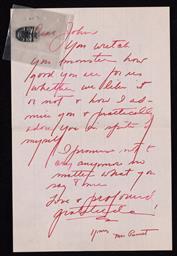 Dear John
You wretch
you monster how
good you are for us
whether we like it
or not & how I ad-
mire you & practically
adore you in spite of
myself
I promise not to
cry anymore no
matter what you
say to me
Love & profound
gratitude!
Yours